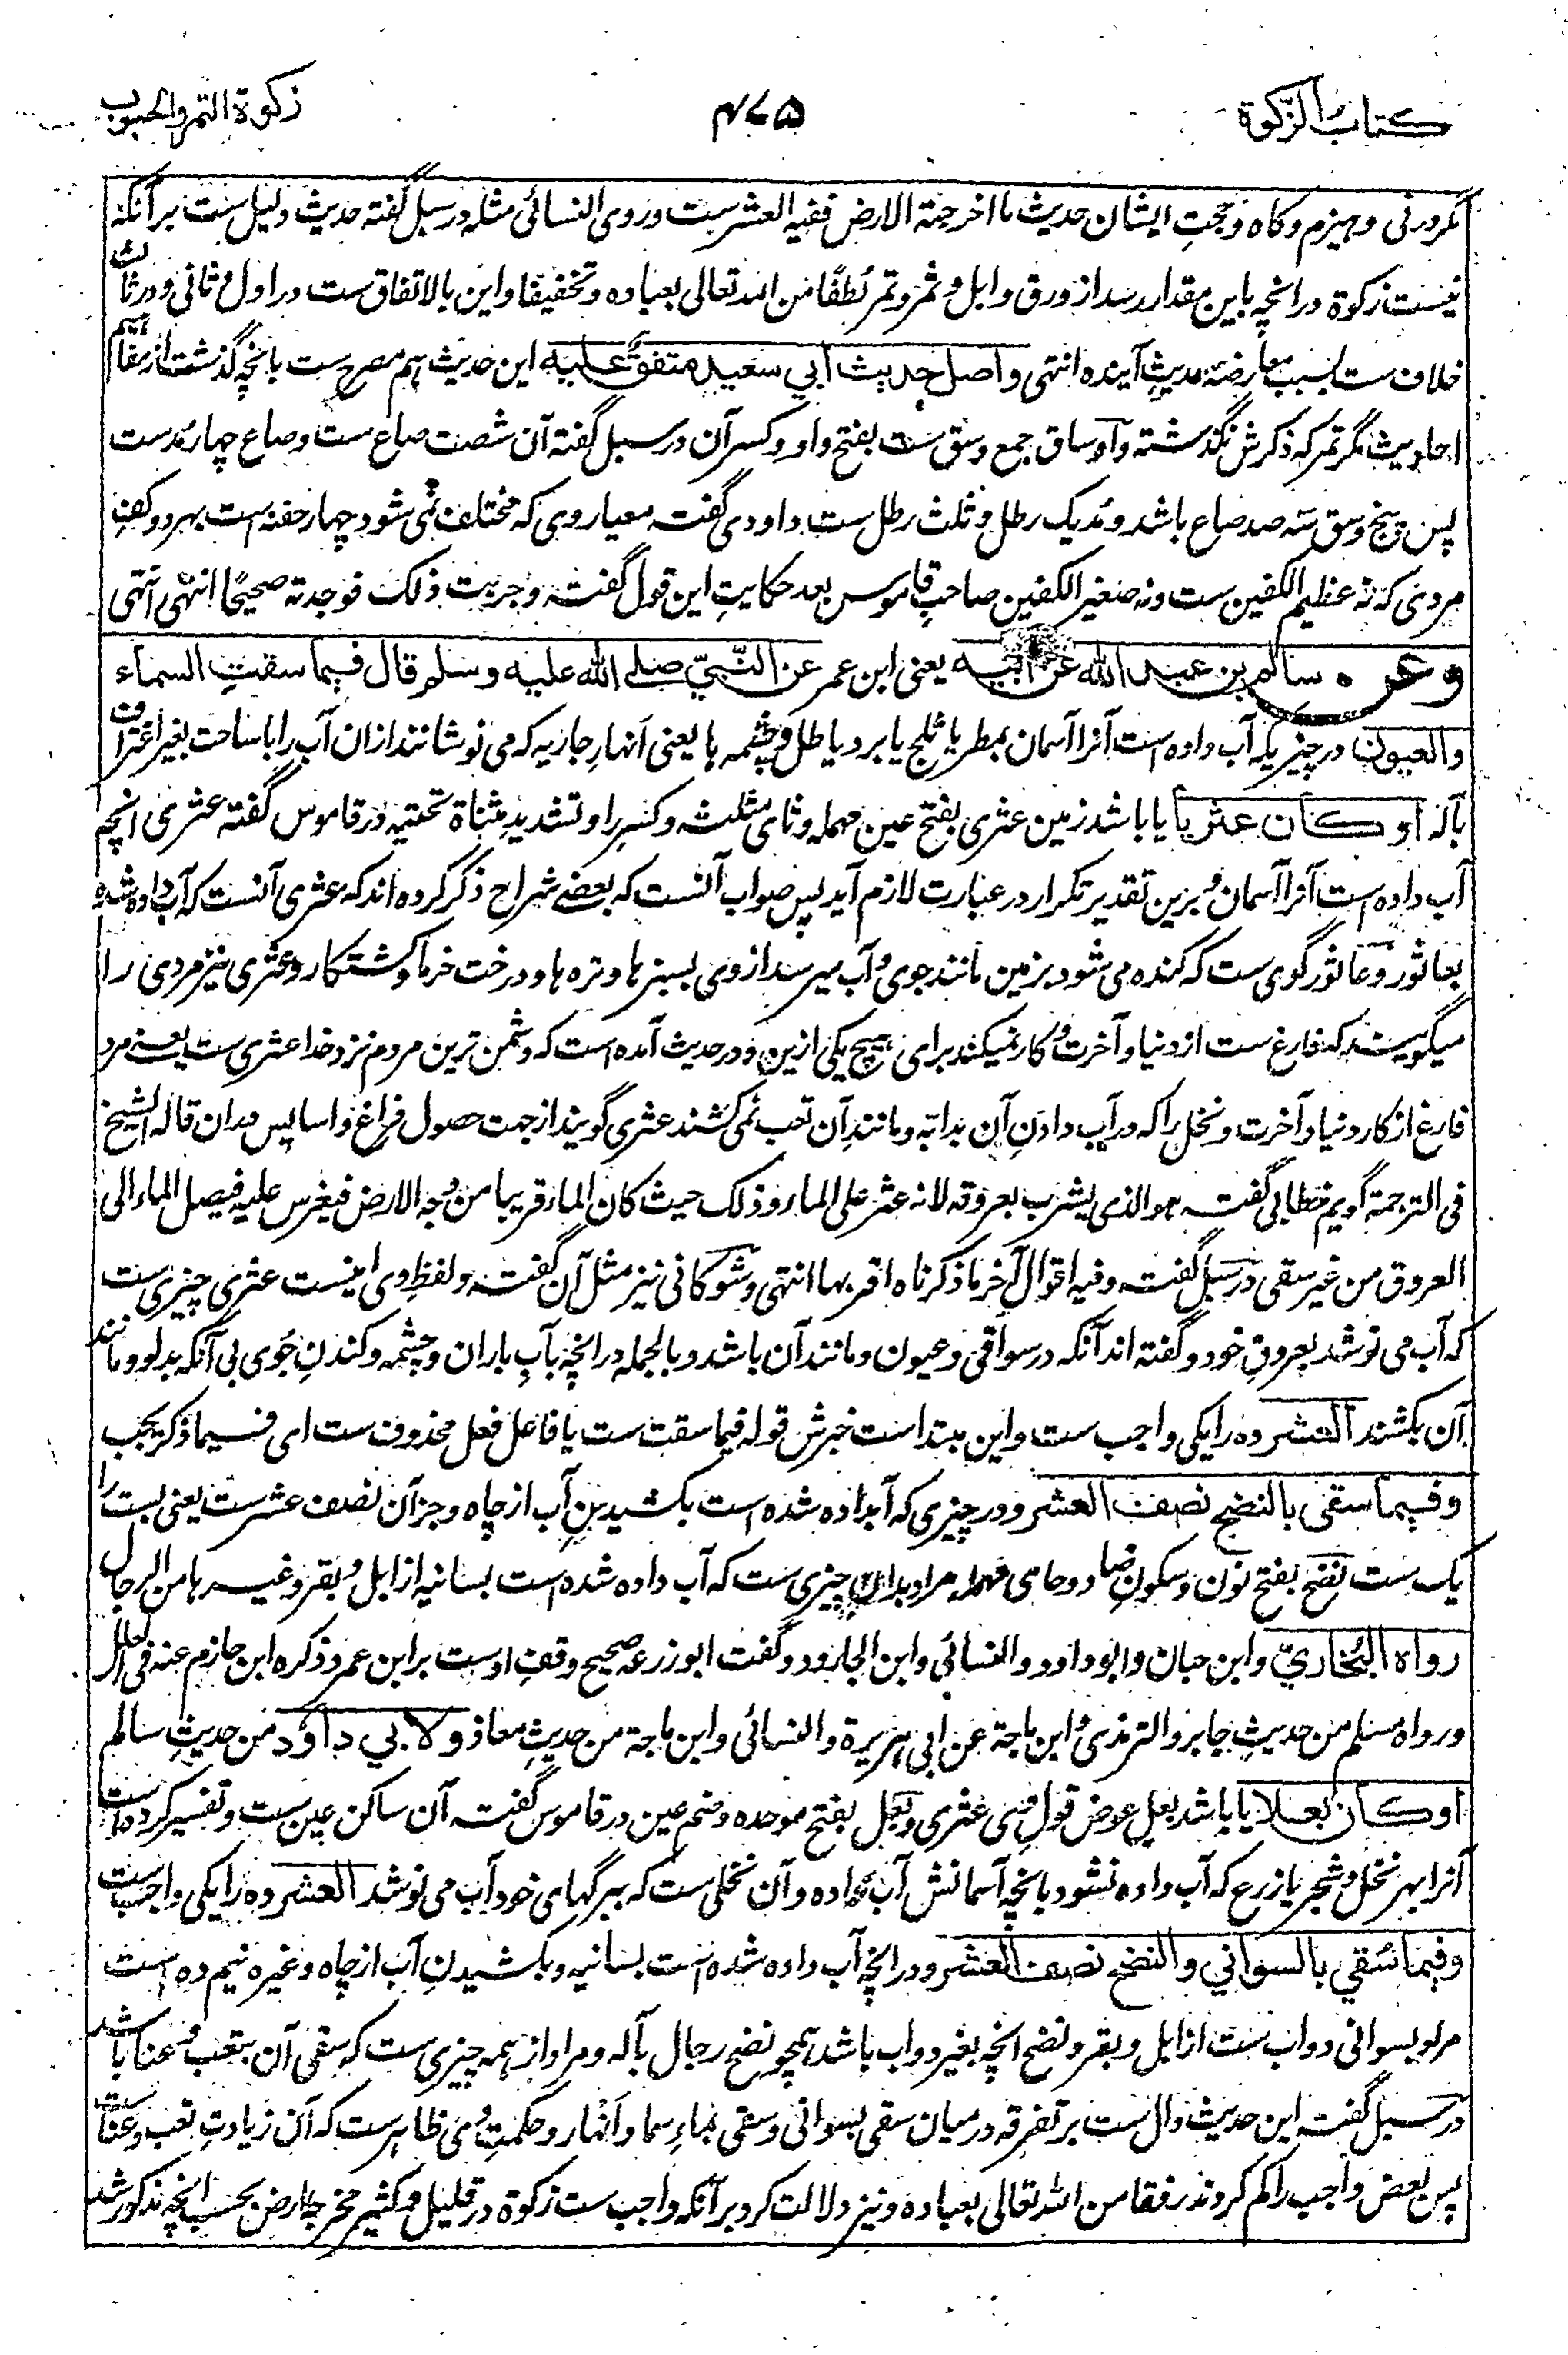 کتاب الزکوة
۴۷۵
زکوة التمر والحبوب
مگر در نی و ہیزم و کاه و حجتِ ایشان حدیث ما اخرجتہ الارض ففیہ العشر ست وروی النسائی مثلہ در سبل گفتہ حدیث دلیل ست برآنکہ
نیست زکوة در انچہ باین مقدار نرسد از ورق و ابل و ثمر و تمر لطفًا من اللہ تعالی بعباده و تخفیفا و این بالاتفاق ست در اول و ثانی و در ثالث
خلاف ست بسبب معارضۂ حدیثِ آینده انتہی واصل حديث أبي سعيد متفق عليه این حدیث ہم مصرح ست بانچہ گذشت از مفاہیم
احادیث مگر تمر کہ ذکرش نگذشتہ و اوساق جمع وسق ست بفتح واو و کسر آن در سبل گفتہ آن شصت صاع ست و صاع چہار مد ست
پس پنج وسق سہ صد صاع باشد و مُد یک رطل و ثلث رطل ست داودی گفتہ معیار وی کہ مختلف نمی شود چہار حفنہ است بہر دو کفِ
مردی کہ نہ عظیم الکفین ست و نہ صغیر الکفین صاحب قاموس بعد حکایتِ این قول گفتہ وجربت ذلک فوجدتہ صحیحًا انتہی انتہی
وعن سالم بن عبد الله عن ابيه یعنی ابن عمر عن النبي صلى الله عليه وسلم قال فيما سقت السماء
والعيون در چیزیکہ آب داده است آنرا آسمان بمطر یا ثلج یا برد یا طل و چشمہ ہا یعنی اَنہارِ جاریہ کہ می نوشانند ازان آب را باساحت بغیر اغتراف
بآلہ او كان عثريا یا باشد زمین عثری بفتح عین مہملہ و ثای مثلثہ و کسر را و تشدیدِ مثناة تحتیہ در قاموس گفتہ عثری انچہ
آب داده است آنرا آسمان و برین تقدیر تکرار در عبارت لازم آید پس صواب آنست کہ بعضے شراح ذکر کرده اند کہ عثری آنست کہ آب داده شود
بعاثور و عاثور گوی ست کہ کنده می شود بزمین مانند جوی و آب میرسد از وی بسبزہا و تره ہا و درخت خرما و کشتکار و عثری نیز مردی را
میگویند کہ فارغ ست از دنیا و آخرت و کار نمیکند برای ہیچ یکی ازین و در حدیث آمده است کہ دشمن ترین مردم نزد خدا عثری ست یعنے مرد
فارغ از کار دنیا و آخرت و نخل را کہ در آب دادنِ آن بدابہ و مانندِ آن تعب نمی کشند عثری گویند از جہت حصول فراغ و اسایس بدان قالہ الشیخ
فی الترجمة گویم خطابی گفتہ ہو الذی یشرب بعروقہ لانہ عثر علی الماء وذلک حیث کان الماء قریبا من وجہ الارض فیغرس علیہ فیصل الماء الی
العروق من غیر سقی در سبل گفتہ وفیہ اقوال آخر ما ذکرناه اقربہا انتہی و شوکانی نیز مثل آن گفتہ و لفظِ وی اینست عثری چیزی ست
کہ آب می نوشد بعروقِ خود و گفتہ اند آنکہ در سواقی و عیون و مانند آن باشد و بالجملہ در انچہ بآبِ باران و چشمہ و کندنِ جوی بی آنکہ بدلو و مانند
آن بکشند العشر ده را یکی واجب ست و این مبتدا ست خبرش قولہ فیما سقت ست یا فاعل فعل محذوف ست ای فیما ذکر یجب
وفيما سقى بالنضح نصف العشر و در چیزی کہ آبداده شده است بکشیدنِ آب از چاه و جز آن نصف عشر ست یعنی بست را
یک ست نضح بفتح نون و سکونِ ضاد و حای مہملہ مراد بدان چیزی ست کہ آب داده شده است بسانیہ از ابل و بقر و غیرہا من الرجال
رواه البخاري و ابن حبان و ابو داود و النسائی و ابن الجارود و گفت ابو زرعہ صحیح وقفِ اوست بر ابن عمر و ذکره ابن حازم عنہ فی العلل
ورواه مسلم من حدیثِ جابر و الترمذی و ابن ماجة عن ابی ہریرة و النسائی و ابن ماجة من حدیثِ معاذ ولابي داؤد من حدیثِ سالم
اوكان بعلا یا باشد بعل عوض قولِ وی عثری و بعل بفتح موحده و ضم عین در قاموس گفتہ آن ساکن عین ست و تفسیر کرده است
آنرا بہر نخل و شجر یا زرع کہ آب داده نشود یا نچہ آسمانش آب داده و آن نخلی ست کہ ببرگہای خود آب می نوشد العشر ده را یکی واجب ست
وفيما سُقي بالسواني والنضح نصف العشر و در انچہ آب داده شده است بسانیہ و بکشیدنِ آب از چاه و غیره نیم ده است
مراد بسوانی دواب ست از ابل و بقر و نضح انچہ بغیر دواب باشد ہمچو نضح رجال بآلہ و مراد از ہمہ چیزی ست کہ سقی آن بتعب و عنا باشد
در سبل گفتہ این حدیث دال ست بر تفرقہ در میان سقی بسوانی و سقی بماءِ سما و اَنہار و حکمتِ وی ظاہر ست کہ آن زیادتِ تعب و عناست
پس بعض واجب را کم کردند رفقا من اللہ تعالی بعباده و نیز دلالت کرد بر آنکہ واجب ست زکوة در قلیل و کثیر مخرج ارض بحسب انچہ مذکور شد